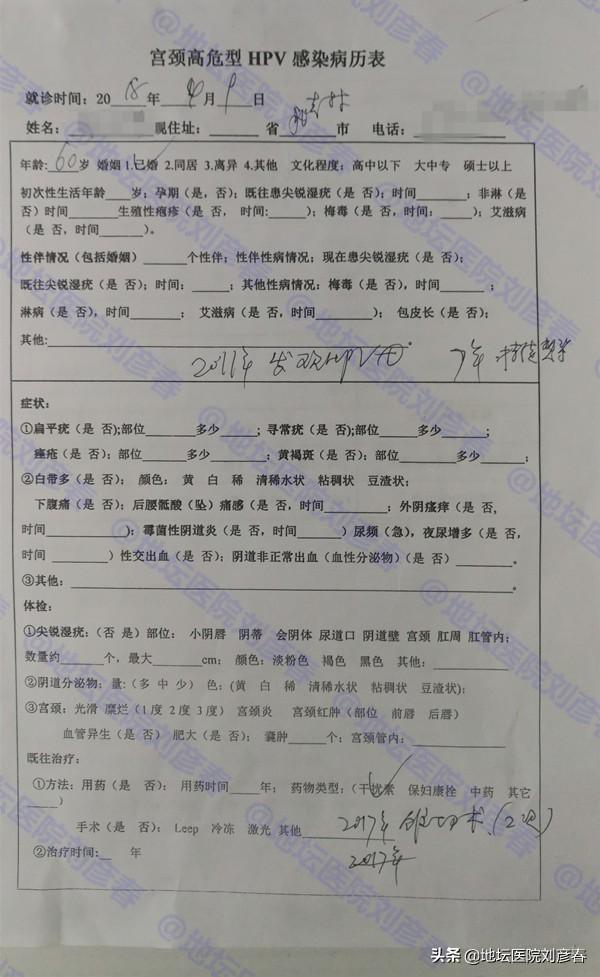 宫颈高危型 HPV 感染病历表
就诊时间：2018年 月9日
姓名： 现住址： 省 市 电话：
年龄：60岁 婚姻 1.已婚 2.同居 3.离异 4.其他 文化程度：高中以下 大中专 硕士以上
初次性生活年龄 岁；孕期（是，否）；既往患尖锐湿疣（是 否）；时间 ；非淋（是
否）时间 生殖性疱疹（是 否， 时间： ）；梅毒（是 否，时间： ）；艾滋病
（是 否，时间 ）。
性伴情况（包括婚姻） 个性伴；性伴性病情况：现在患尖锐湿疣（是 否）；
既往尖锐湿疣（是 否）；时间： ； 其他性病情况：梅毒（是 否），时间 ；
淋病（是 否），时间 ； 艾滋病（是 否，时间 ）； 包皮长（是 否）；
其他：
2011年 发现HPV 7年
症状：
①扁平疣（是 否）；部位 多少 ；寻常疣（是 否）；部位 多少 ；
痤疮（是 否）；部位 多少 ； 黄褐斑（是 否）；部位 多少 ；
②白带多（是 否）； 颜色： 黄 白 稀 清稀水状 粘稠状 豆渣状；
下腹痛（是 否）；后腰骶酸（坠）痛感（是 否，时间 ； 外阴瘙痒（是 否，
时间 ）；霉菌性阴道炎（是 否，时间 ）尿频（急），夜尿增多（是 否，
时间 ）性交出血（是 否）；阴道非正常出血（血性分泌物）（是 否） 。
③其他： 。
体检：
①尖锐湿疣：（否 是）部位： 小阴唇 阴蒂 会阴体 尿道口 阴道壁 宫颈 肛周 肛管内；
数量约 个，最大 cm； 颜色：淡粉色 褐色 黑色 其他：
②阴道分泌物：量：（多 中 少） 色：（黄 白 稀 清稀水状 粘稠状 豆渣状）；
③宫颈：光滑 糜烂（1度 2度 3度） 宫颈炎 宫颈红肿（部位 前唇 后唇）
血管异生（是 否） 肥大（是 否）； 囊肿 个；宫颈管内：
既往治疗：
①方法：用药（是 否）； 用药时间 年； 药物类型：（干扰素 保妇康栓 中药 其它
）
手术（是 否）； Leep 冷冻 激光 其他 2017年 术（2次）
②治疗时间： 年 2017年
@地坛医院刘彦春
头条 @地坛医院刘彦春